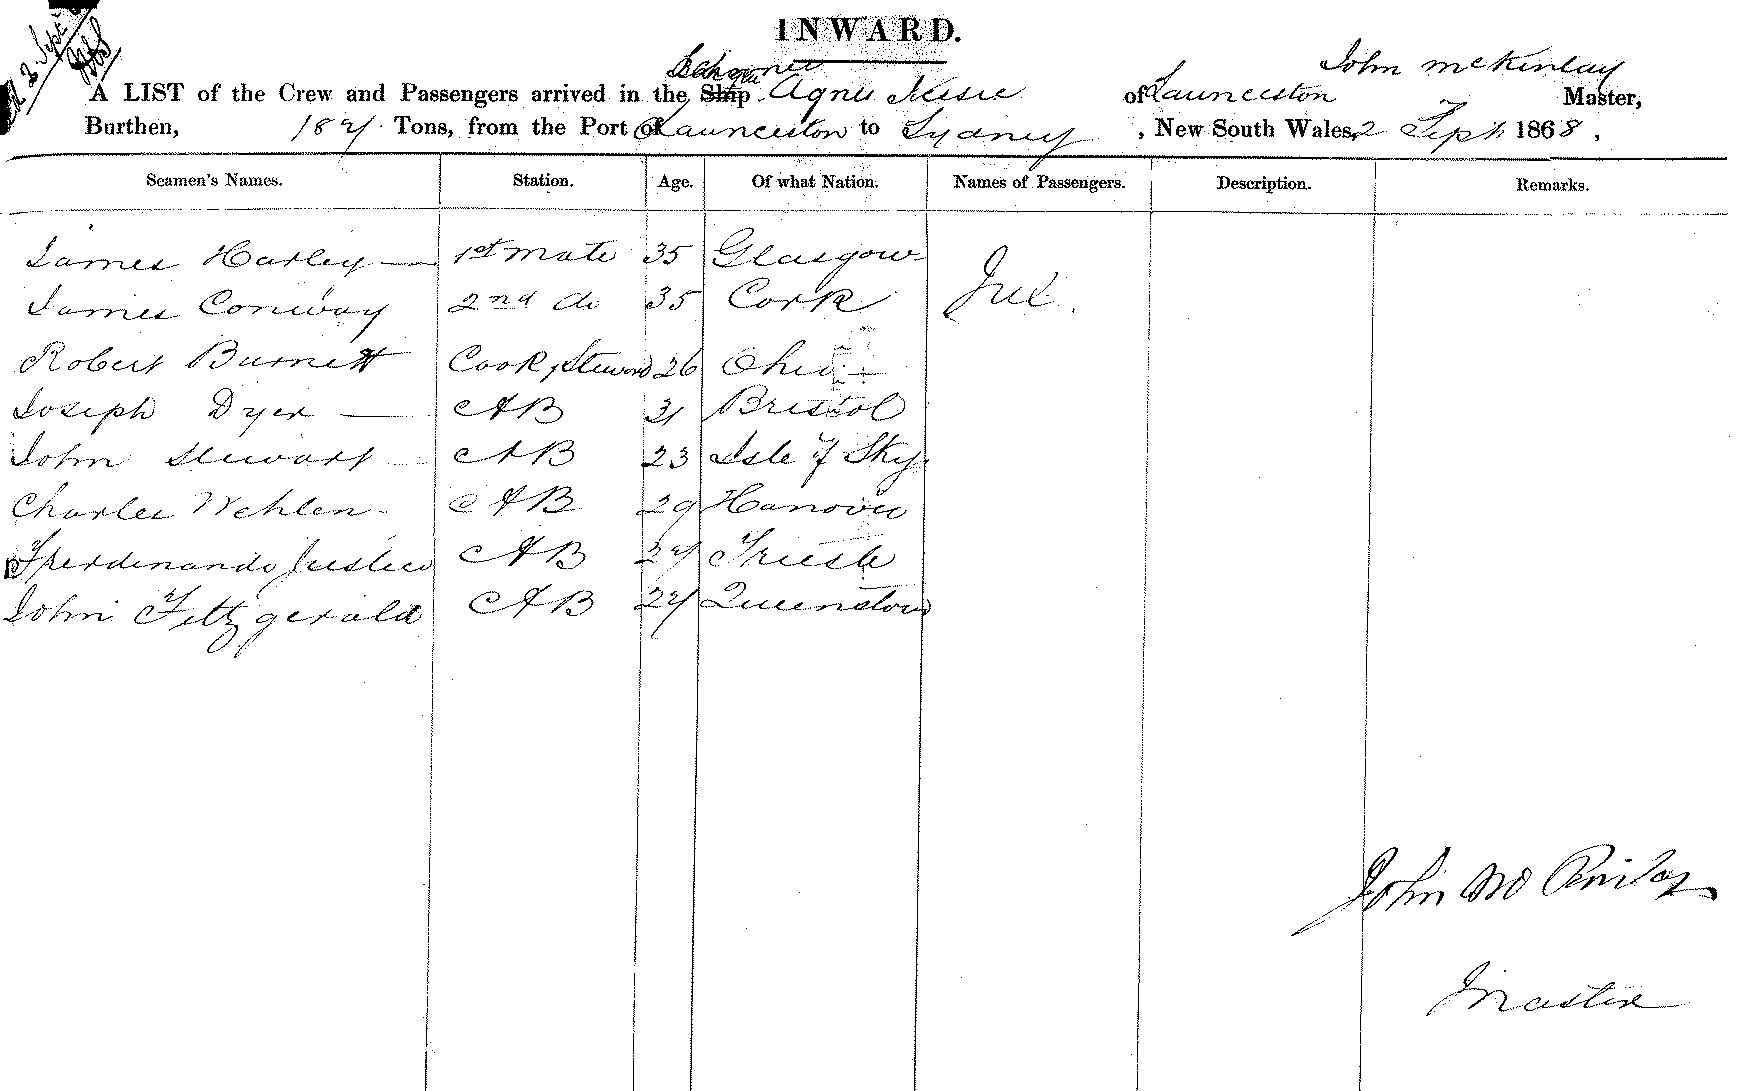 2 Sept
INWARD.
Schooner
John McKinlay
A LIST of the Crew and Passengers arrived in the Ship Agnes Jessie of Launceston Master,
Burthen, 187 Tons, from the Port of Launceston to Sydney , New South Wales, 2 Sept 1868 .
Seamen's Names. Station. Age. Of what Nation. Names of Passengers. Description. Remarks.
James Harley 1st mate 35 Glasgow
James Conway 2nd do 35 Cork
Robert Burnett Cook, Steward 26 Ohio
Joseph Dyer AB 31 Bristol
John Stewart AB 23 Isle of Sky
Charles Wehlen AB 29 Hanover
Fherdinando AB 27 Trieste
John Fittzgerald AB 27 Queenstown
John McKinlay
Master